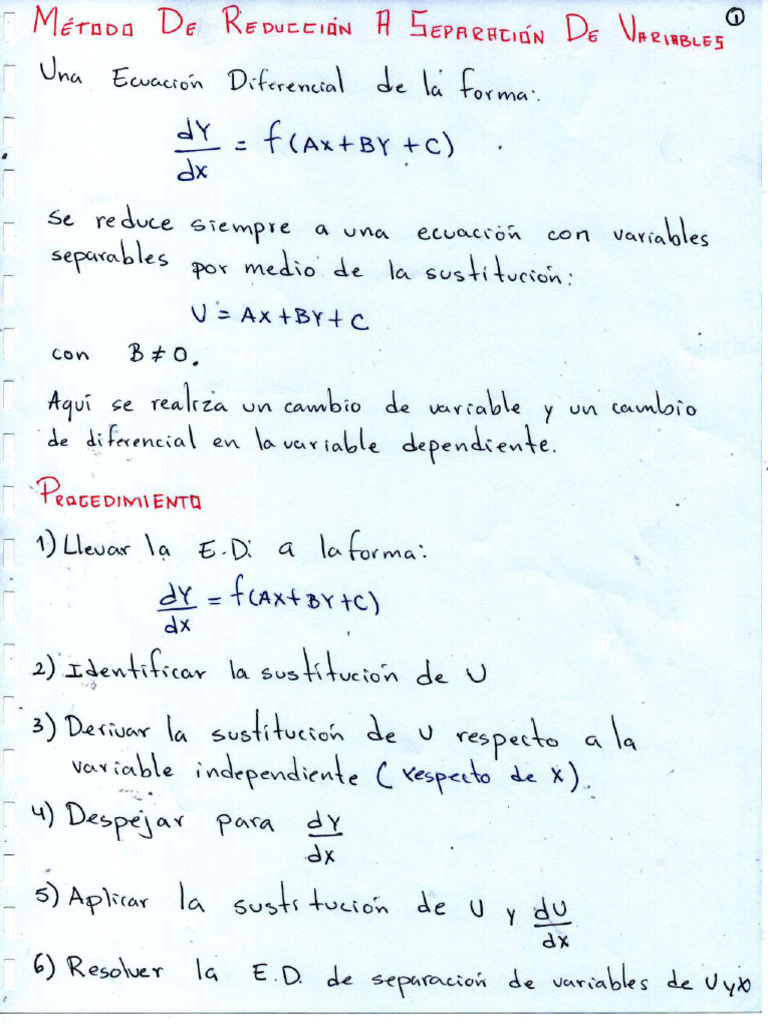 MÉTODO DE REDUCCIÓN A SEPARACIÓN DE VARIABLES ①
Una Ecuación Diferencial de la forma:
dY/dx = f(Ax+BY+C)
se reduce siempre a una ecuación con variables
separables por medio de la sustitución:
U = Ax+BY+C
con B≠0.
Aquí se realiza un cambio de variable y un cambio
de diferencial en la variable dependiente.
PROCEDIMIENTO
1) Llevar la E.D. a la forma:
dY/dx = f(Ax+BY+C)
2) Identificar la sustitución de U
3) Derivar la sustitución de U respecto a la
variable independiente (respecto de x).
4) Despejar para dY/dx
5) Aplicar la sustitución de U y dU/dx
6) Resolver la E.D. de separación de variables de U y x